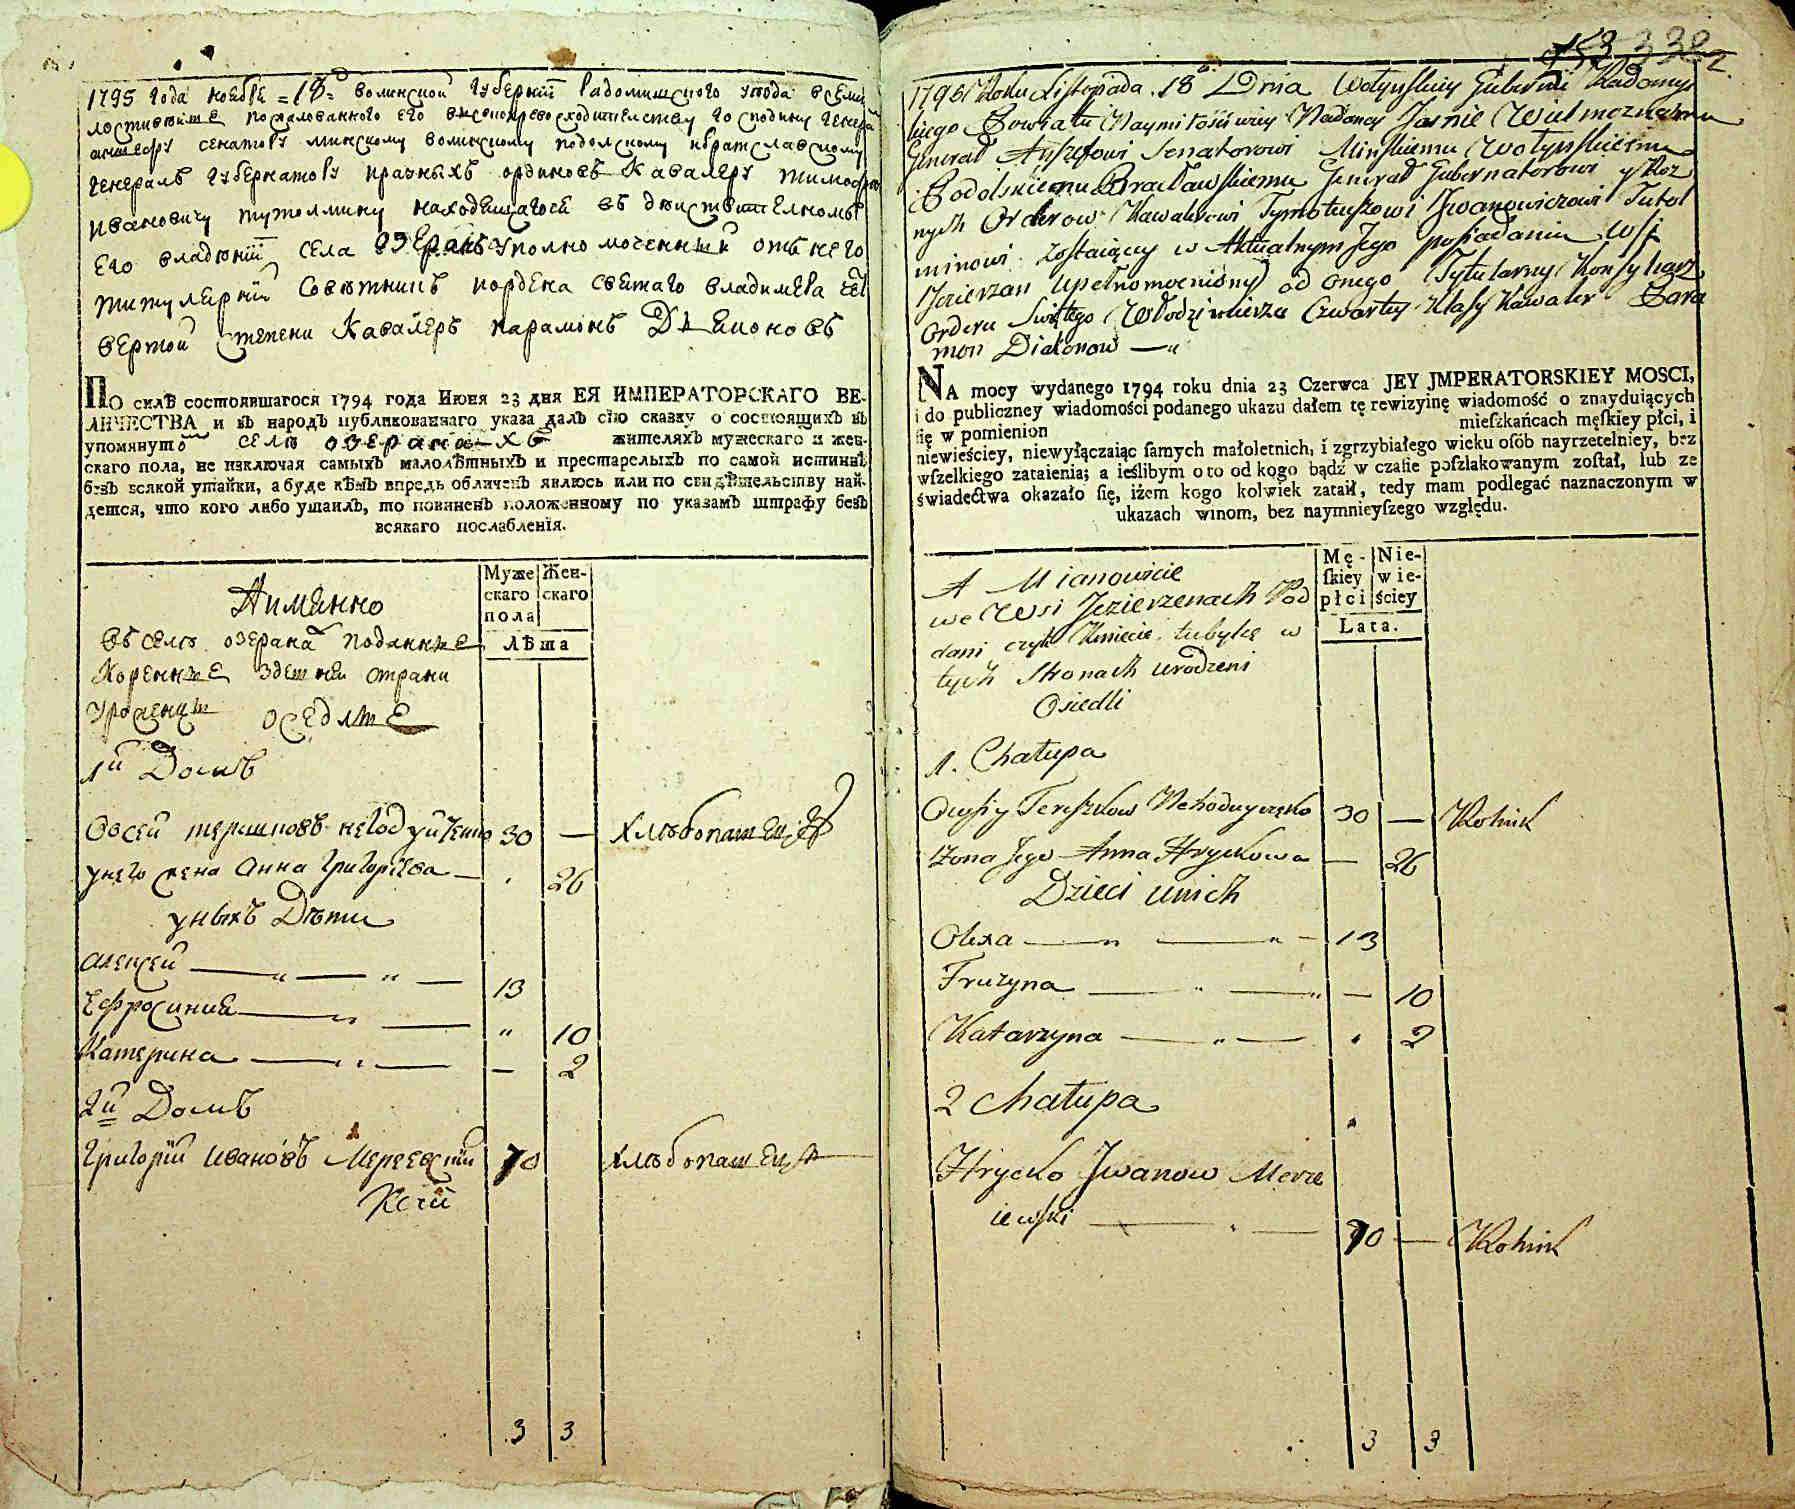 1795 года ноября =18= волинской губернiи Радомишского уезда всеми
лостивейше пожалованного его високопревосходителству господину генералъ
аншефу сенатору минскому волинскому подолскому ибрацлавскому
генералъ губернатору и разныхъ ординовъ Кавалеру тимофею
ивановичу тутолмину находящагося въ действителномъ
Его владенiи села Озеранъ уполномоченний отъ него
титулярнiй Советникъ иордена святаго владимера чет
вертой степени Кавалеръ парамонъ Дьяконовъ
ПО силѣ состоявшагося 1794 года Июня 23 дня ЕЯ ИМПЕРАТОРСКАГО ВЕ-
ЛИЧЕСТВА и въ народъ публикованнаго указа далъ сїю сказку о состоящихъ въ
упомянутo селѣ озеранахъ жителяхъ мужескаго и жен-
скаго пола, не изключая самыхъ малолѣтныхъ и престарелыхъ по самой истиннѣ
безъ всякой утайки, а буде кѣмъ впредь обличенъ явлюсь или по свидѣтельству най-
дется, что кого либо утаилъ, то повиненъ положенному по указамъ штрафу безъ
всякаго послабленїя.
Аимянно
въ селѣ озеранахъ подание
Коренние здешней страни
уроженци оседлие
Муже
скаго
пола
Жен-
скаго
Лѣта
1й Домъ
Овсей терешковъ негодуйченко 30 — хлѣбопашецъ
унего жена Анна Григорiева — 26
унихъ Дѣти
Алексей — „ — „ — 13
Ефросиния — „ — „ 10
Катерина — „ — — 2
2й Домъ
Григорiй Ивановъ Мержеевский 70 хлѣбопашецъ
Кий
3 3
153 332 2.
1795 Roku Listopada 18 Dnia Wołynskiey Gubernii Radomys
kiego Powiatu Naymiłościwiey Nadoney Jasnie Wielmoznemu
Generał Anszefowi Senatorowi Minskiemu Wołynskiemu
Podolskiemu Bracławskiemu Generał Gubernatorowi y Roz
nych Orderow Kawalerowi Tymoteuszowi Iwanowiczowi Tutoł
minowi zostaiącey w Aktualnym Jego posiadaniu Wsi
Jezierzan Upełnomocniony od onego Tytularny Konsyliarz
Orderu Swiętego Włodzimierza Czwartey Klasy Kawaler Para
mon Diakonow — „
NA mocy wydanego 1794 roku dnia 23 Czerwca JEY JMPERATORSKIEY MOSCI,
i do publiczney wiadomości podanego ukazu dałem tę rewizyinę wiadomość o znayduiących
ſię w pomienion mieſzkańcach męſkiey płci, i
niewieściey, niewyłączaiąc ſamych małoletnich, i zgrzybiałego wieku osób nayrzetelniey, bez
wſzelkiego zataienia; a ieślibym o to od kogo bądź w czaſie poſzlakowanym zoſtał, lub ze
świadectwa okazało ſię, iżem kogo kolwiek zataił, tedy mam podlegać naznaczonym w
ukazach winom, bez naymnieyſzego względu.
A Mianowicie
we Wsi Jezierzenach Pod
dani czyli Kmiecie tubylcę w
tych Stronach urodzeni
Osiedli
Mę-
ſkiey
płci
Nie-
wie-
ściey
Lata.
1. Chałupa
Owsiy Tereszkow Nehoduyczęnko 30 — Rolnik
Żona Jego Anna Hryckowa — 26
Dzieci unich
Olexa — „ — „ — 13
Fruzyna — „ — „ — 10
Katarzyna — „ — „ 2
2 Chałupa
Hrycko Iwanow Merze
iewski — „ — 70 — Rolnik
3 3